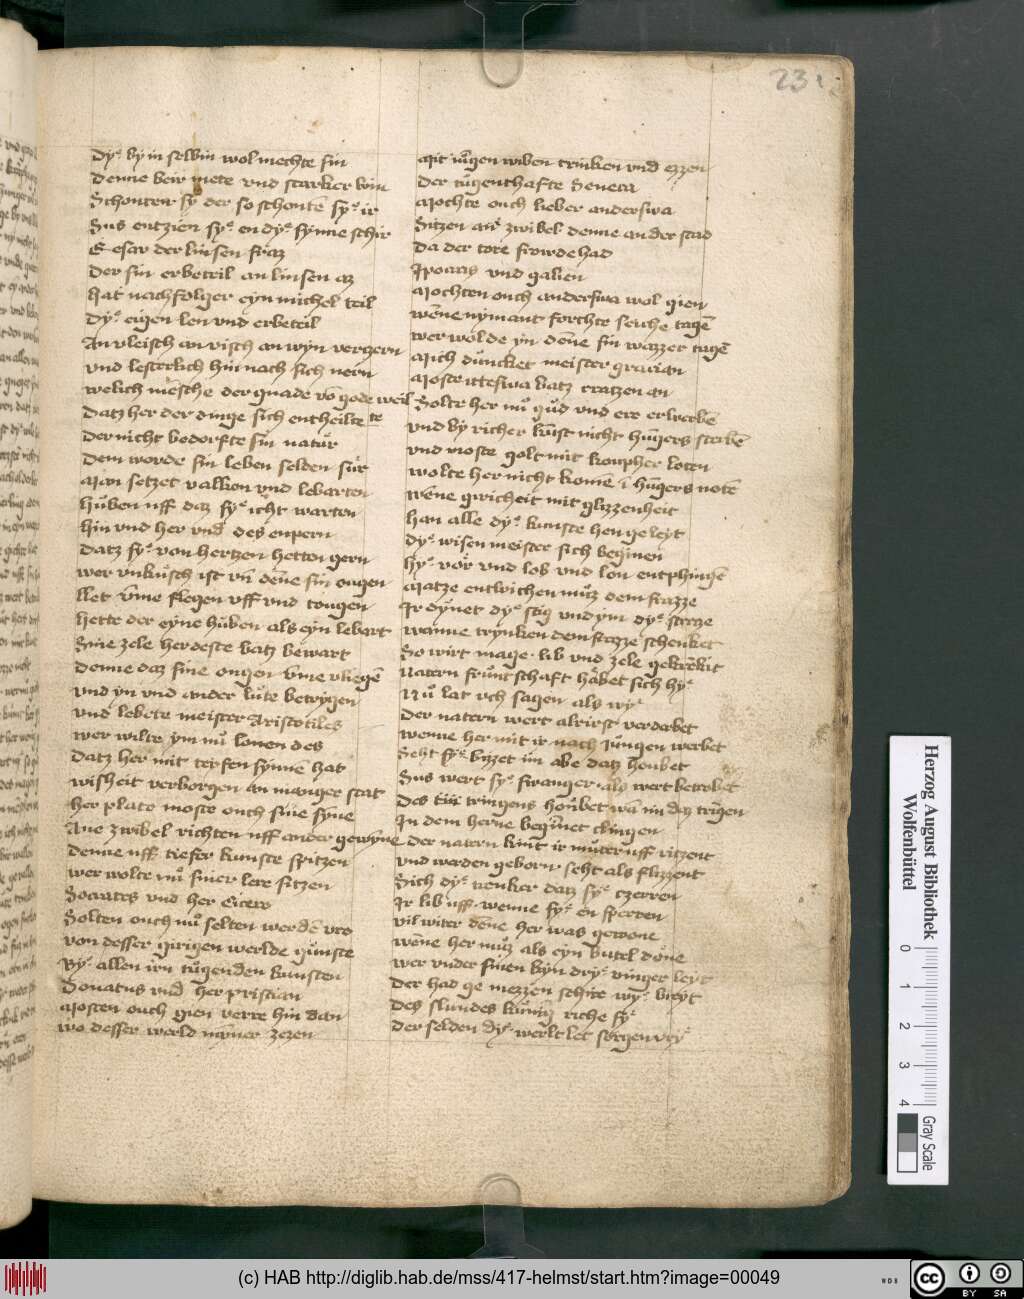 231
dyͤ by in selbin wol mechte sin
Denne beir mete vnd starker win
Schonten sy der so schonte syͤ ir
Sus entzien syͤ en dyͤ synne schir
Esar der linsen fraz
Der sin erbeteil an linsen az
Hat nachfolger eyn michel teil
Dyͤ eigen len vnd erbeteil
An vleisch an visch an wyn verzern
vnd lesterlich hin nach sich nern
welich mēsche der gnade vō gode weil
Datz her der dinge sich entheilte
Der nicht bedorfte sin natur
Dem worde sin leben selden sur
Man setzet valken vnd lebarten
Huben uff daz syͤ icht warten
Hin vnd her vnd des enpern
Datz syͤ von hertzen hetten gern
wer vnkusch ist vn̄ dēne sin ougen
llet vm̄e flegen vff vnd tougen
Hette der eyne huben als eyn lebart
Sine zele herdeste batz bewart
Denne daz sine ougen vm̄e vliegē
vnd yn vnd ander lute betrygen
vnd lebete meister Aristotiles
wer wilte ym nu lonen des
Datz her mit teyfen synnē hat
wisheit verborgen an manger stat
Her plato moste ouch sine syne
Ane zwibel richten uff ander gewyne
Denne uff tiefer kunste spitzen
wer wolte nu siner lere sitzen
Socrates vnd her Cicero
Solten ouch nu selten werdē vro
von desser girigen werlde gunste
Byͤ allen irn tugenden kunsten
Donatus vnd her pristian
Mosten ouch gien verre hin dan
wo desser werld namer zezen
Mit iungen wiben trinken vnd ezzen
Der tugenthafte Seneca
Mochte ouch lieber anderswa
Sitzen an zwibel denne an der stad
Da der tore frowde had
Ipocras vnd galien
Mochten ouch anderswa wol gien
wēne nymant forchte seiche tagē
wer wolde yn dēne sin wazzer tagē
Mich duncket meister gracian
Moste ittefwa batz cratzen an
Solte her nu gud vnd ere erwerbē
vnd by richer kunst nicht hungers sterbē
vnd moste golt mit koupher loten
wolte her nicht kome ī hungers notē
wēne gwicheit mit glizzenheit
Han alle dyͤ kunste hen geleyt
Dyͤ wisen meister sich beginen
Hyͤ vor vnd lob vnd lon entphingē
Matze entwichen muz dem frazze
Ir eynet dyͤ stig vnd ym dyͤ straze
wanne trynken dem frazze schenket
So wirt mage lib vnd zele gekrēkit
Natern fruntschaft habet sich hyͤ
Nu lat vch sagen als wyͤ
Der natern wert alrirst verderbet
wenne her mit ir nach iungen werbet
Seht syͤ bizet im abe datz houbet
Sus wert syͤ swanger als wert betrobet
Des tringens houbet wā im daz tragen
In dem herne begīnet clingen
Der natern kint ir muter uff ritzent
vnd werden geborn seht als flizzent
Sich dyͤ trnker datz syͤ czerren
Ir lib uff wenne syͤ en sperren
vil witer dēne her was gewone
wēne her muz als eyn butel done
wer vnder sinen kyn dryͤ vinger leyt
Der had ge mezzen schire wyͤ breyt
Des slundes kunig riche syͤ
Der selden dyͤ werlt let sorgen vryͤ
Herzog August Bibliothek
Wolfenbüttel
0 1 2 3 4
Gray Scale
(c) HAB http://diglib.hab.de/mss/417-helmst/start.htm?image=00049
WDB
cc BY SA